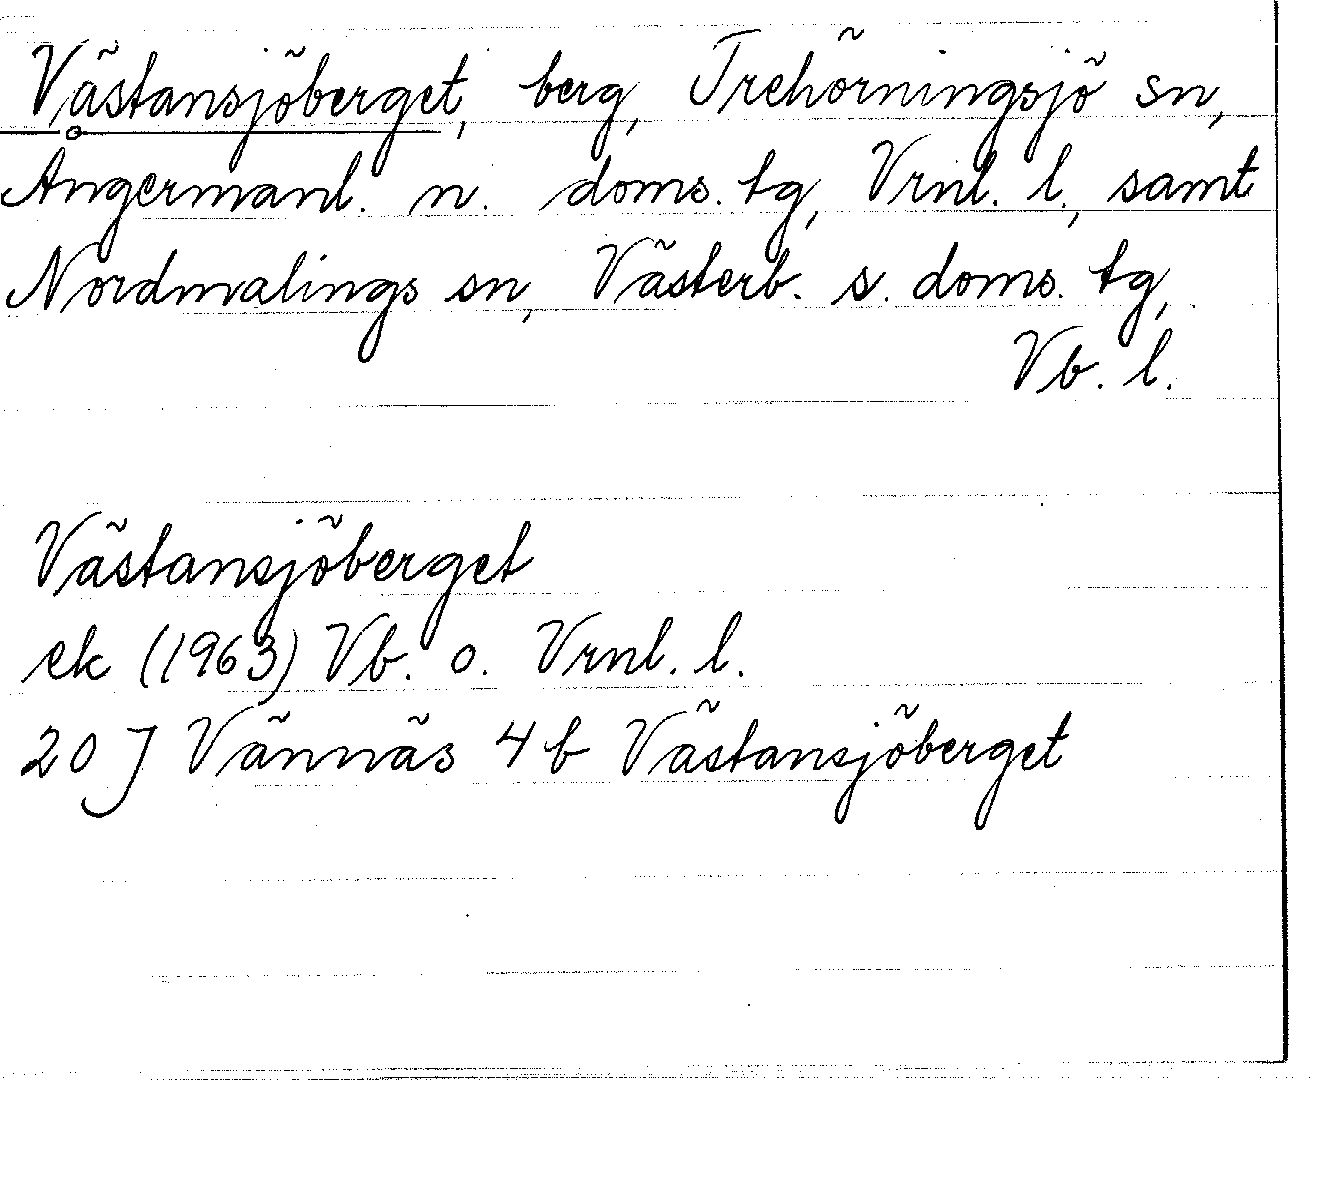 Västansjöberget, berg, Trehörningsjö sn,
Ångermanl. n. doms. tg, Vrnl. l., samt
Nordmalings sn, Västerb. s. doms. tg,
Vb. l.
Västansjöberget
ek (1963) Vb. o. Vrnl. l.
20 J Vännäs 4 b Västansjöberget